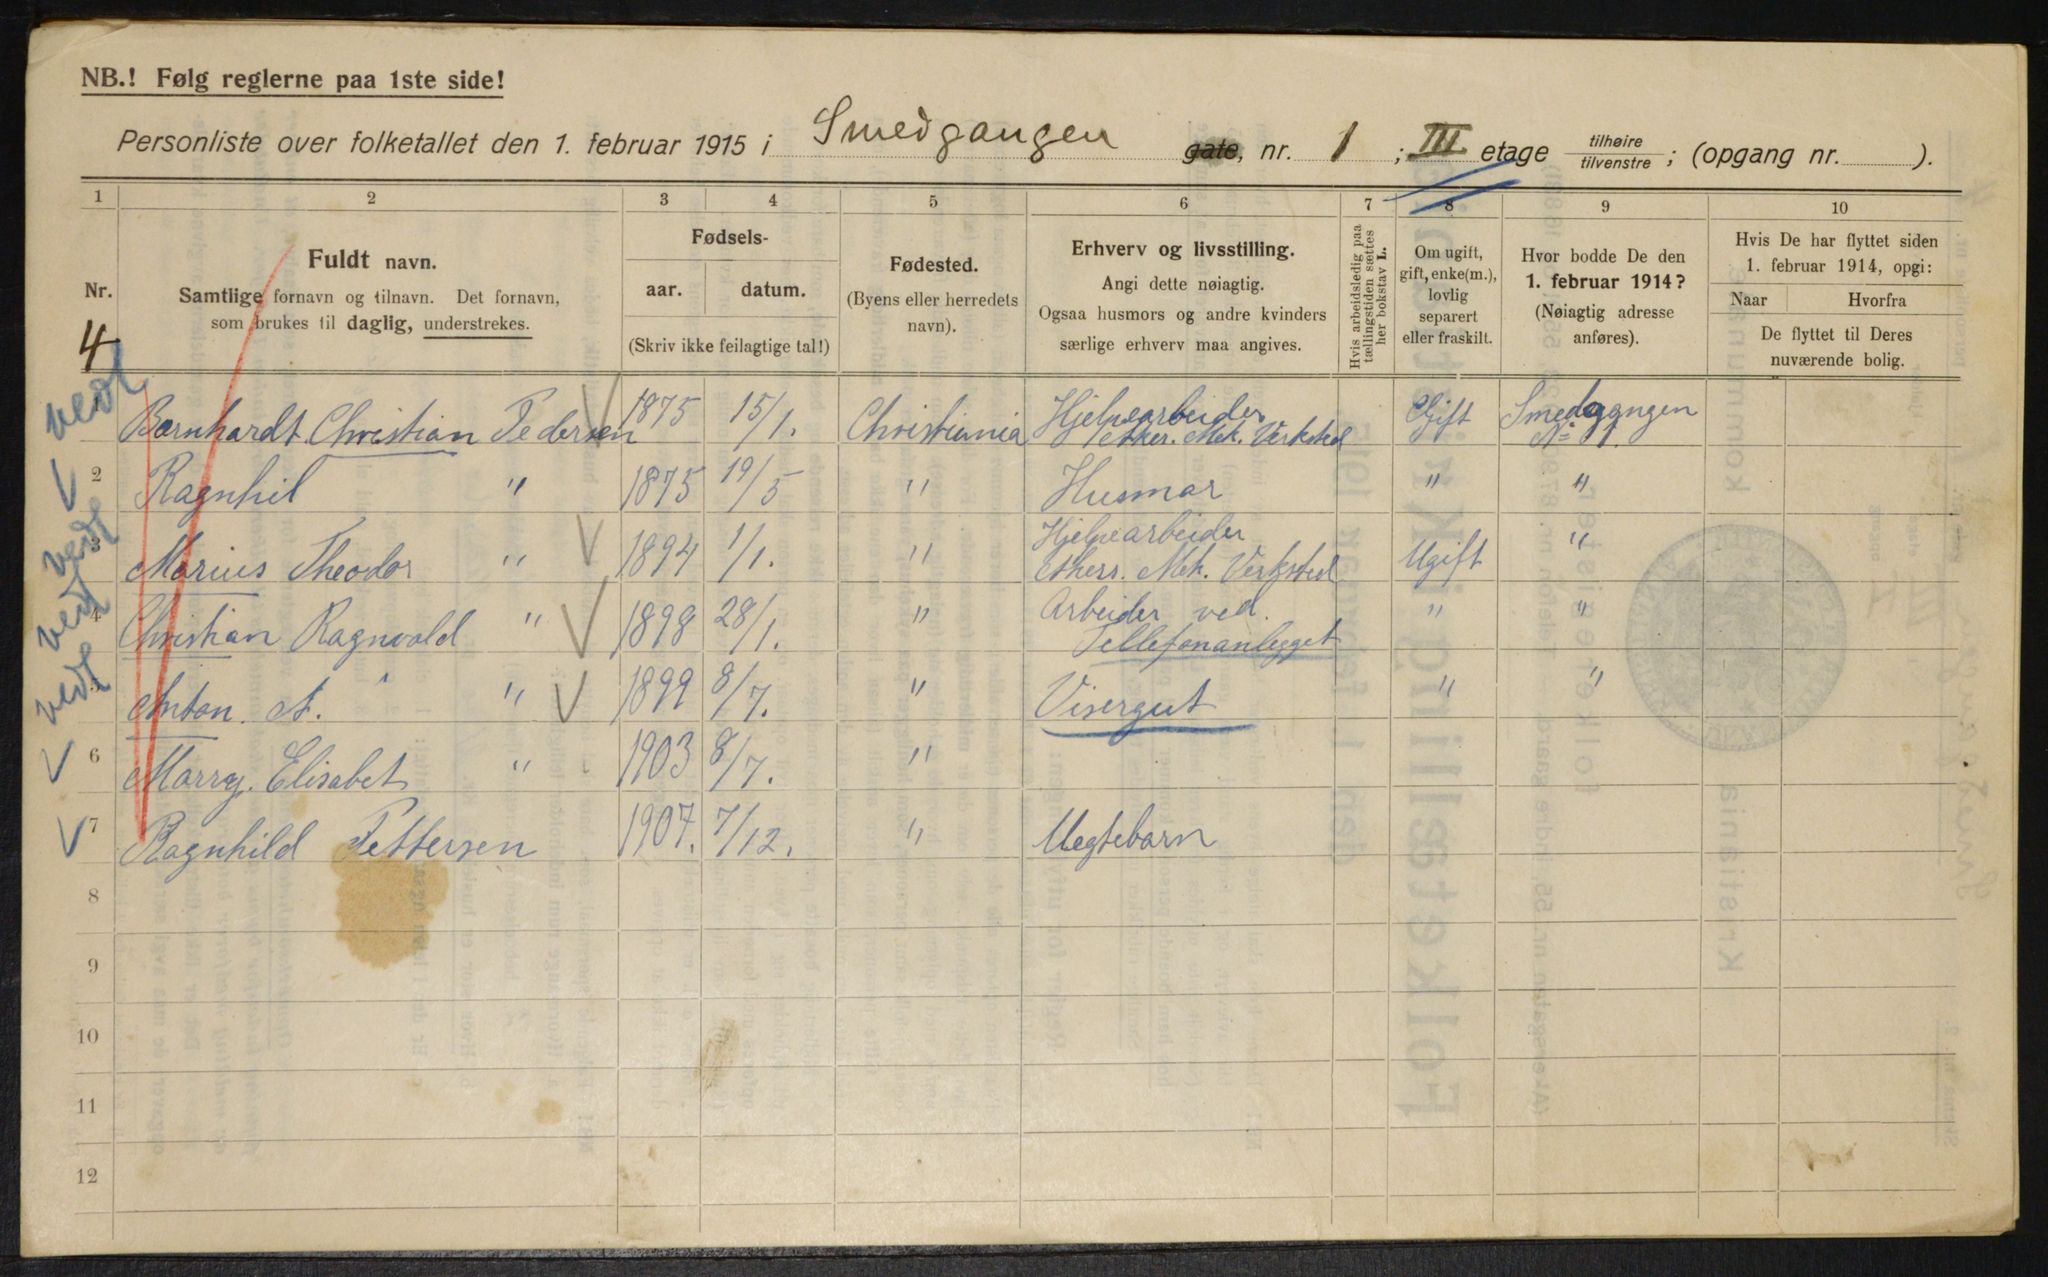 NB.! Følg reglerne paa 1ste side!
Personliste over folketallet den 1. februar 1915 i Smedgangen gate, nr. 1 ; III etage tilhøire tilvenstre ; (opgang nr. ).
1 2 3 4 5 6 7 8 9 10
Nr.
4
Fuldt navn.
Samtlige fornavn og tilnavn. Det fornavn,
som brukes til daglig, understrekes.
Fødsels-
aar. datum.
(Skriv ikke feilagtige tal!)
Fødested.
(Byens eller herredets
navn).
Erhverv og livsstilling.
Angi dette nøiagtig.
Ogsaa husmors og andre kvinders
særlige erhverv maa angives.
Hvis arbeidsledig paa
tællingstiden sættes
her bokstav L.
Om ugift,
gift, enke(m.),
lovlig
separert
eller fraskilt.
Hvor bodde De den
1. februar 1914?
(Nøiagtig adresse
anføres).
Hvis De har flyttet siden
1. februar 1914, opgi:
Naar Hvorfra
De flyttet til Deres
nuværende bolig.
Bernhardt Christian Pedersen 1875 15/1. Christiania Hjelpearbeider Gift Smedgangen
Mek. Verksted No 1.
2 Ragnhil " 1875 19/5 " Husmor " "
3 Marius Theodor " 1894 1/1. " Hjelpearbeider Ugift "
Mek. Verksted
4 Christian Ragnvald " 1898 28/1. " Arbeider ved. " "
Tellefonanlegget
5 Anton. A. " 1899 8/7. " Visergut " "
6 Marry. Elisabet " 1903 8/7. "
7 Ragnhild Pettersen 1907. 7/12. " Plegtebarn
8
9
10
11
12